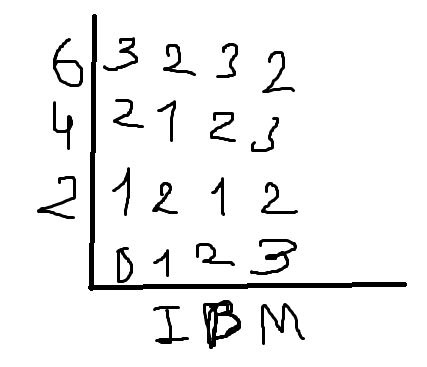 6 3 2 3 2
4 2 1 2 3
2 1 2 1 2
0 1 2 3
I B M